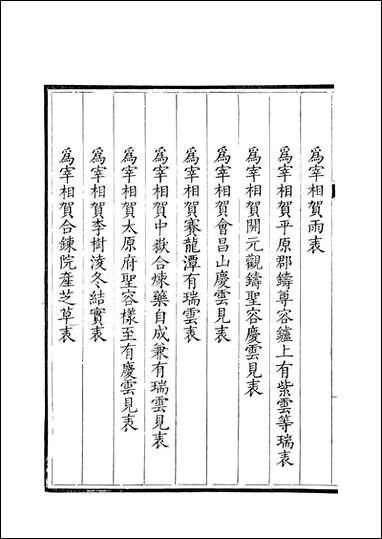 爲宰相賀雨表
爲宰相賀平原郡鑄尊容鑪上有紫雲等瑞表
爲宰相賀開元觀鑄聖容慶雲見表
爲宰相賀會昌山慶雲見表
爲宰相賀賽龍潭有瑞雲表
爲宰相賀中嶽合煉藥自成兼有瑞雲見表
爲宰相賀太原府聖容樣至有慶雲見表
爲宰相賀李樹淩冬結實表
爲宰相賀合鍊院產芝草表